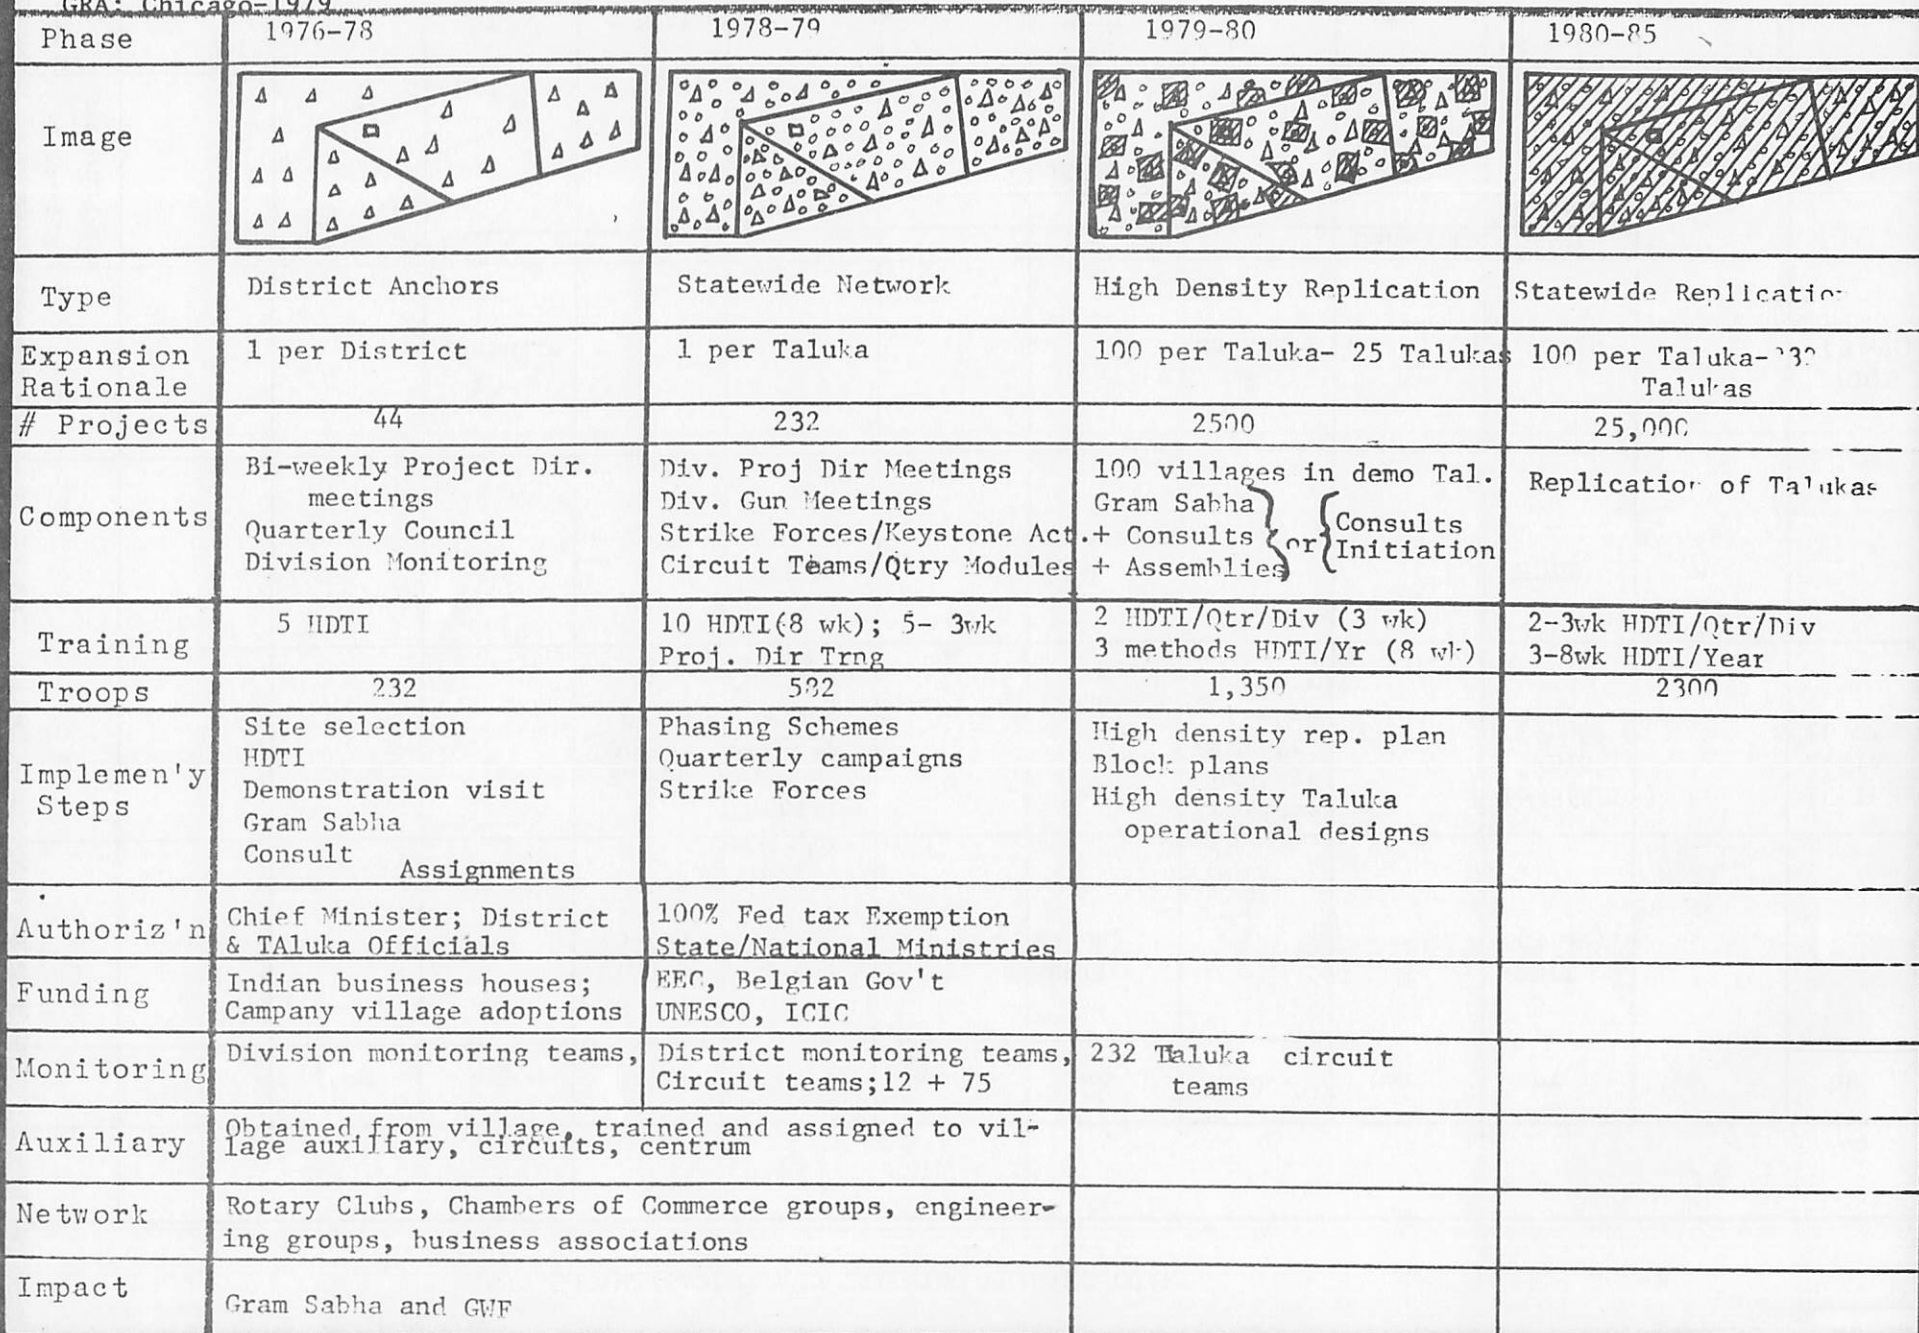 GRA: Chicago-1979
Phase 1976-78 1978-79 1979-80 1980-85
Image
Type District Anchors Statewide Network High Density Replication Statewide Replicatio
Expansion Rationale 1 per District 1 per Taluka 100 per Taluka- 25 Talukas 100 per Taluka- Talukas
# Projects 44 232 2500 25,000
Components
Bi-weekly Project Dir.
meetings
Quarterly Council
Division Monitoring
Div. Proj Dir Meetings
Div. Gun Meetings
Strike Forces/Keystone Act.
Circuit Teams/Qtry Modules
100 villages in demo Tal.
Gram Sabha
+ Consults
+ Assemblies
or
Consults
Initiation
Replication of Talukas
Training
5 HDTI
10 HDTI(8 wk); 5- 3wk
Proj. Dir Trng
2 HDTI/Qtr/Div (3 wk)
3 methods HDTI/Yr (8 wk)
2-3wk HDTI/Qtr/Div
3-8wk HDTI/Year
Troops 232 1,350 2300
Implemen'y
Steps
Site selection
HDTI
Demonstration visit
Gram Sabha
Consult
Assignments
Phasing Schemes
Quarterly campaigns
Strike Forces
High density rep. plan
Block plans
High density Taluka
operational designs
Authoriz'n
Chief Minister; District
& TAluka Officials
100% Fed tax Exemption
State/National Ministries
Funding
Indian business houses;
Campany village adoptions
EEC, Belgian Gov't
UNESCO, ICIC
Monitoring
Division monitoring teams,
District monitoring teams,
Circuit teams;12 + 75
232 Taluka circuit
teams
Auxiliary
Obtained from village, trained and assigned to vil-
lage auxiliary, circuits, centrum
Network
Rotary Clubs, Chambers of Commerce groups, engineer-
ing groups, business associations
Impact
Gram Sabha and GWF